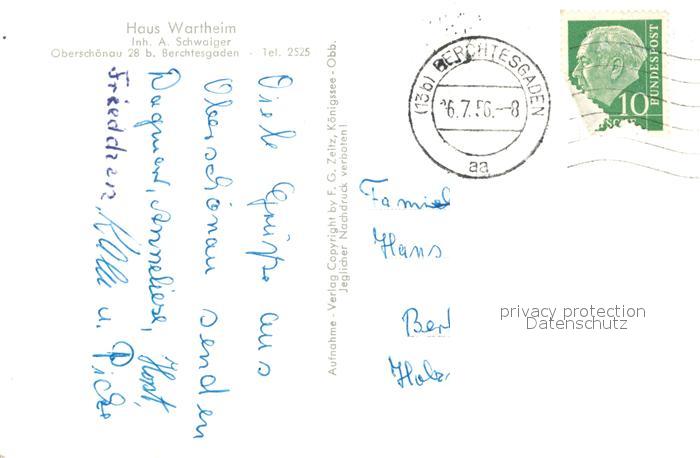 Haus Wartheim
Inh. A. Schwaiger
Oberschönau 28 b. Berchtesgaden - Tel. 2525
Viele Grüße aus
Oberschönau senden
Dagmar, Anneliese, Horst
Friedchen, u.
Aufnahme - Verlag Copyright by F. G. Zeitz, Königssee - Obb.
Jeglicher Nachdruck verboten!
(13b) BERCHTESGADEN
6.7.56.--8
aa
10
BUNDESPOST
Famiel
Hans
Berl
Holz
privacy protection
Datenschutz